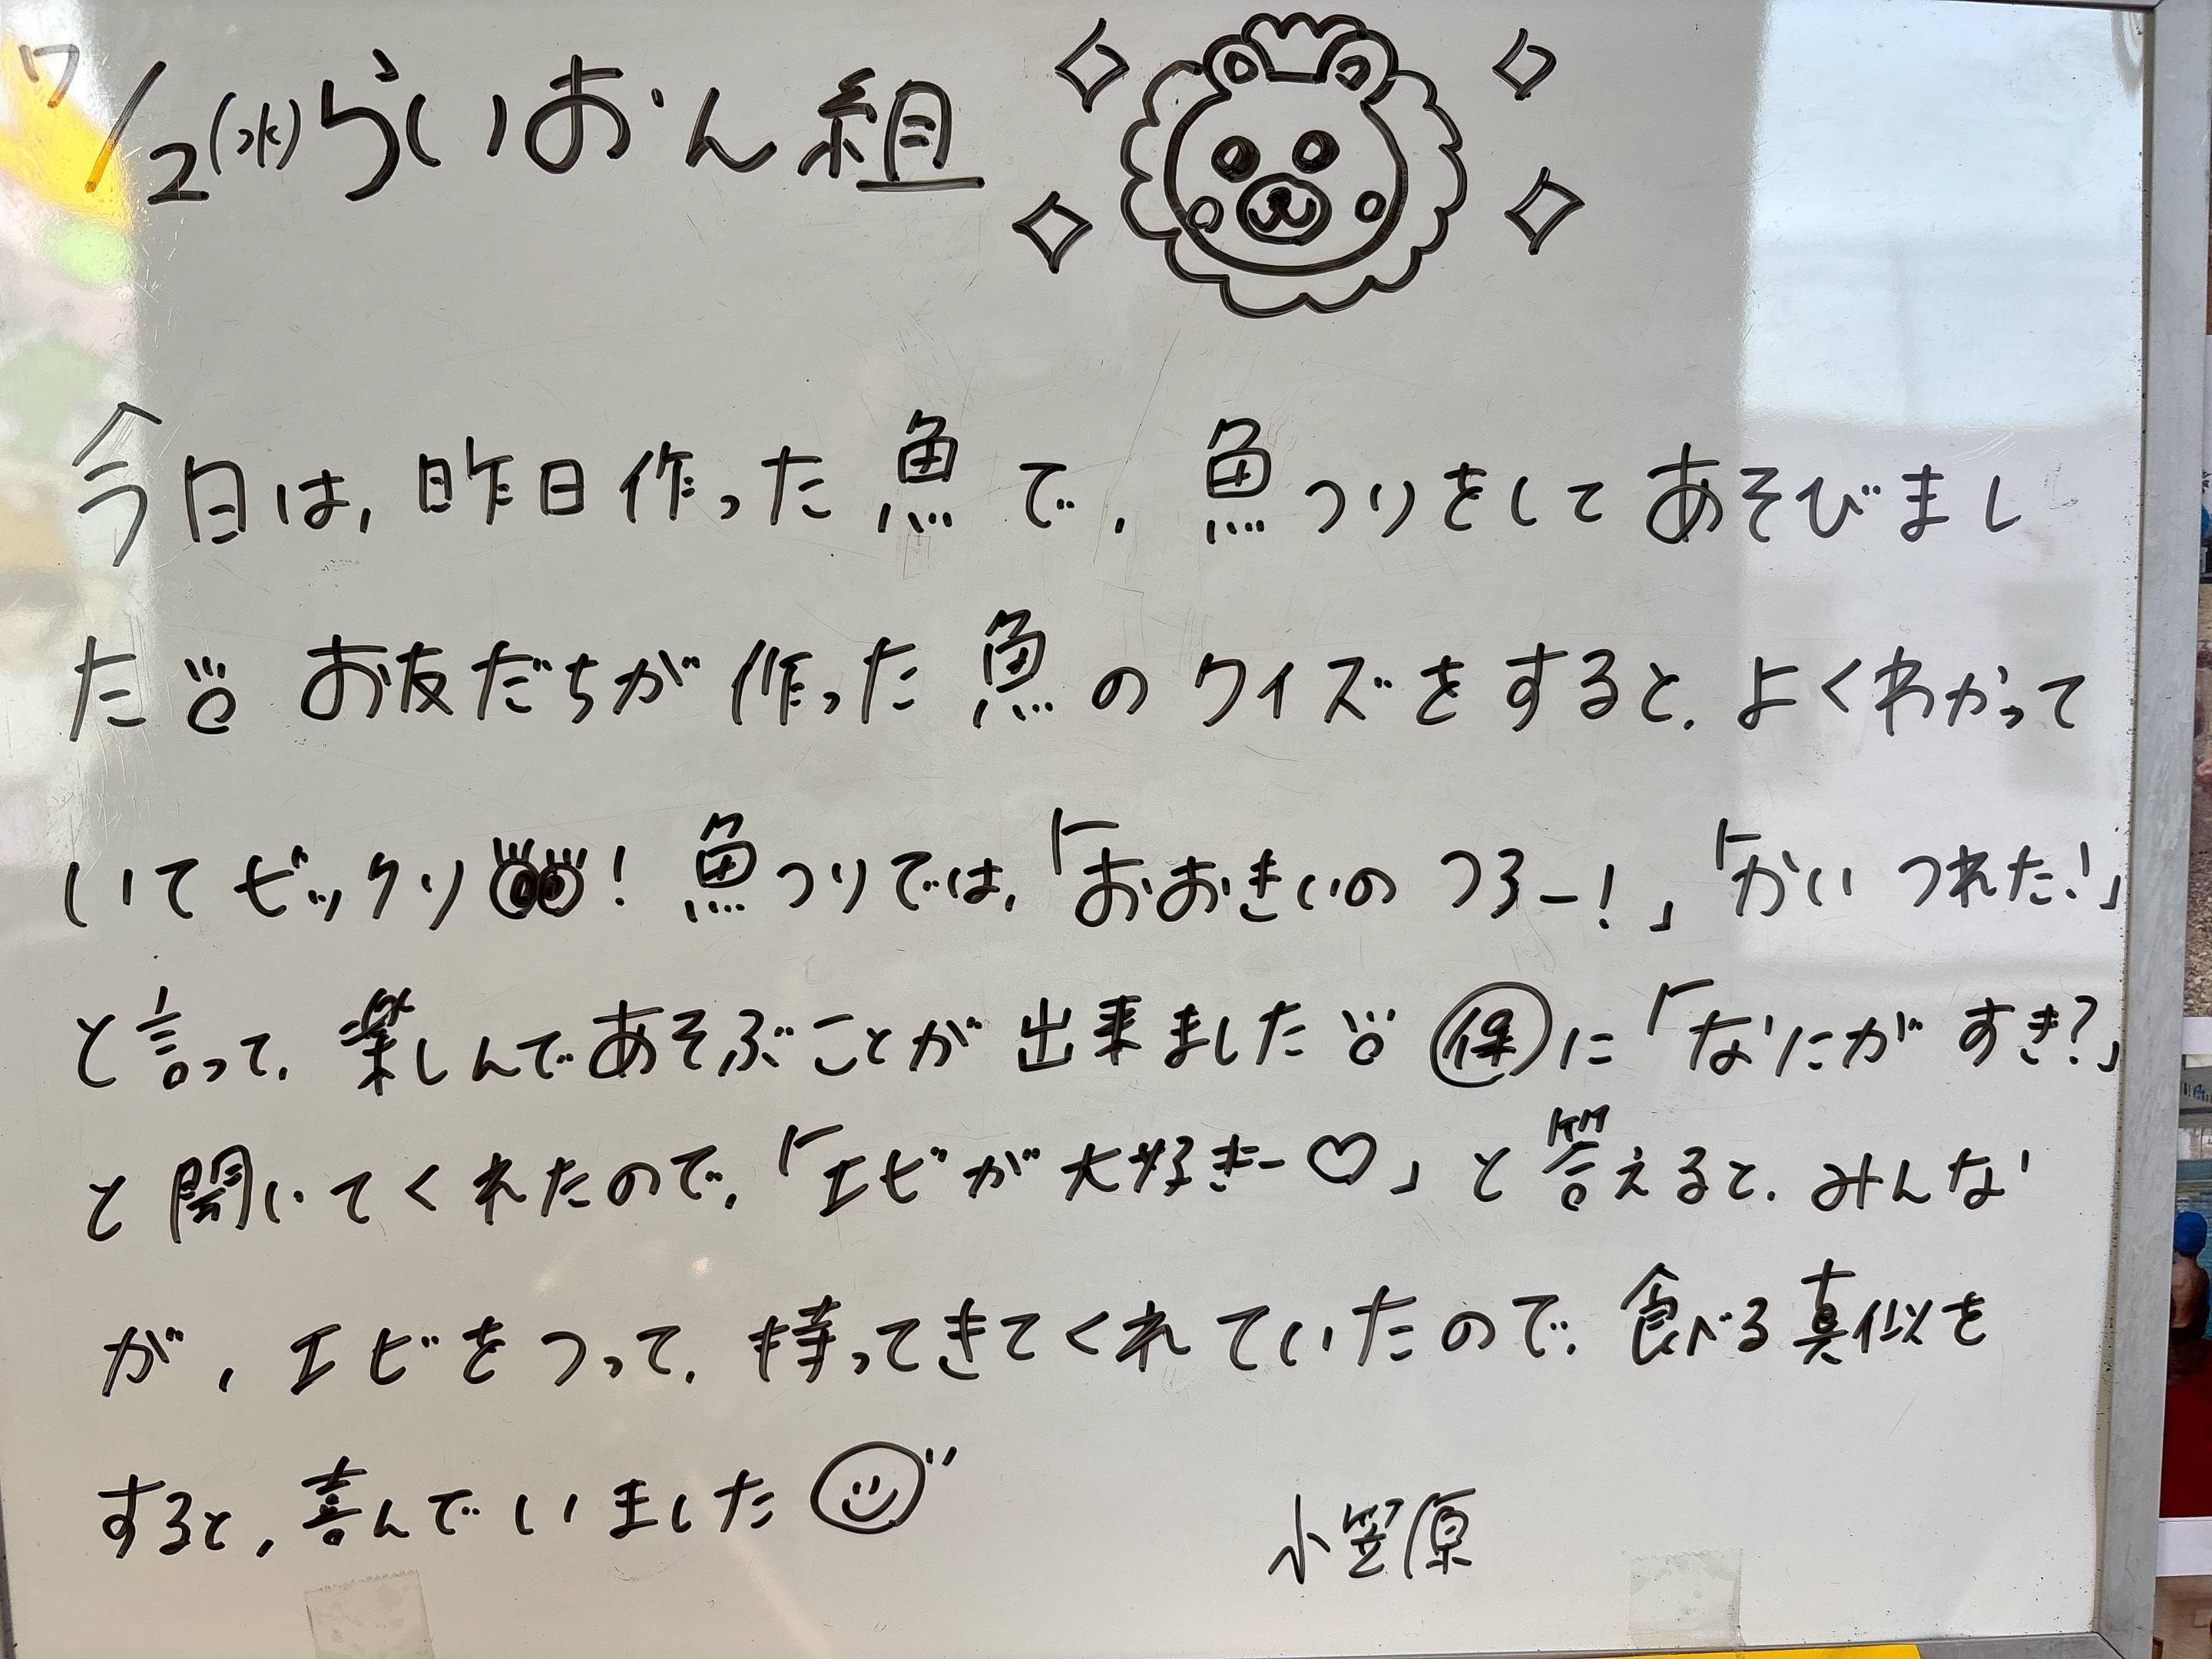 7/2(水)らいおん組
今日は、昨日作った魚で、魚つりをしてあそびまし
た お友だちが作った魚のクイズをすると、よくわかって
いてビックリ! 魚つりでは、「おおきいのつろー!」「かいつれた!」
と言って、楽しんであそぶことが出来ました 保に「なにがすき?」
と聞いてくれたので、「エビが大好きー♡」と答えると、みんな
が、エビをつって、持ってきてくれていたので、食べる真似を
すると、喜んでいました
小笠原